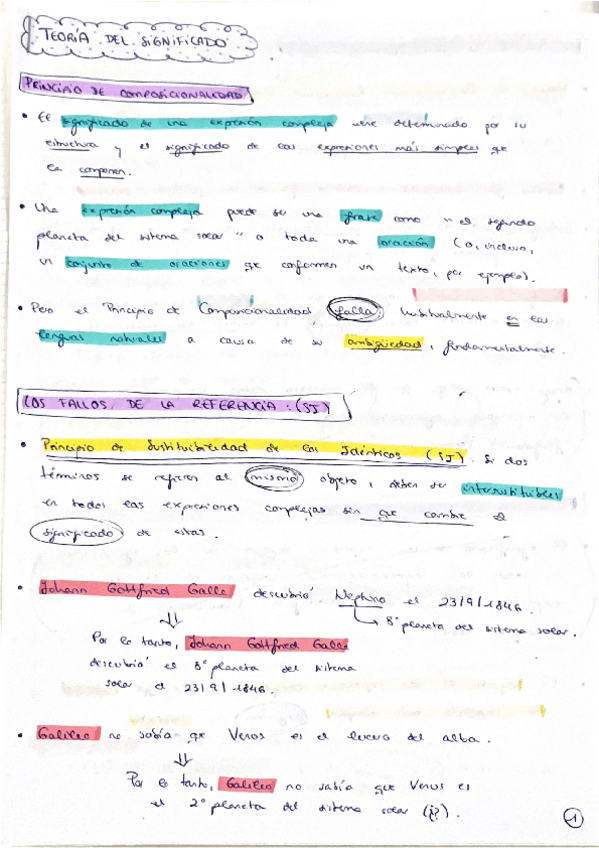 TEORÍA DEL SIGNIFICADO
PRINCIPIO DE COMPOSICIONALIDAD
• El significado de una expresión compleja viene determinado por su
estructura y el significado de las expresiones más simples que
la componen.
• Una expresión compleja puede ser una frase como "el segundo
planeta del sistema solar" o toda una oración (o, incluso,
un conjunto de oraciones que conformen un texto, por ejemplo).
• Pero el Principio de Composicionalidad falla habitualmente en las
lenguas naturales a causa de su ambigüedad, fundamentalmente.
LOS FALLOS DE LA REFERENCIA: (SI)
• Principio de Sustituibilidad de los Idénticos (SI). Si dos
términos se refieren al mismo objeto, deben ser intersustituibles
en todas las expresiones complejas sin que cambie el
significado de estas.
• Johann Gottfried Galle descubrió Neptuno el 23/9/1846.
↳ 8º planeta del sistema solar.
⇓
Por lo tanto, Johann Gottfried Galle
descubrió el 8º planeta del sistema
solar el 23/9/1846.
• Galileo no sabía que Venus es el lucero del alba.
⇓
Por lo tanto, Galileo no sabía que Venus es
el 2º planeta del sistema solar (¿?).
1